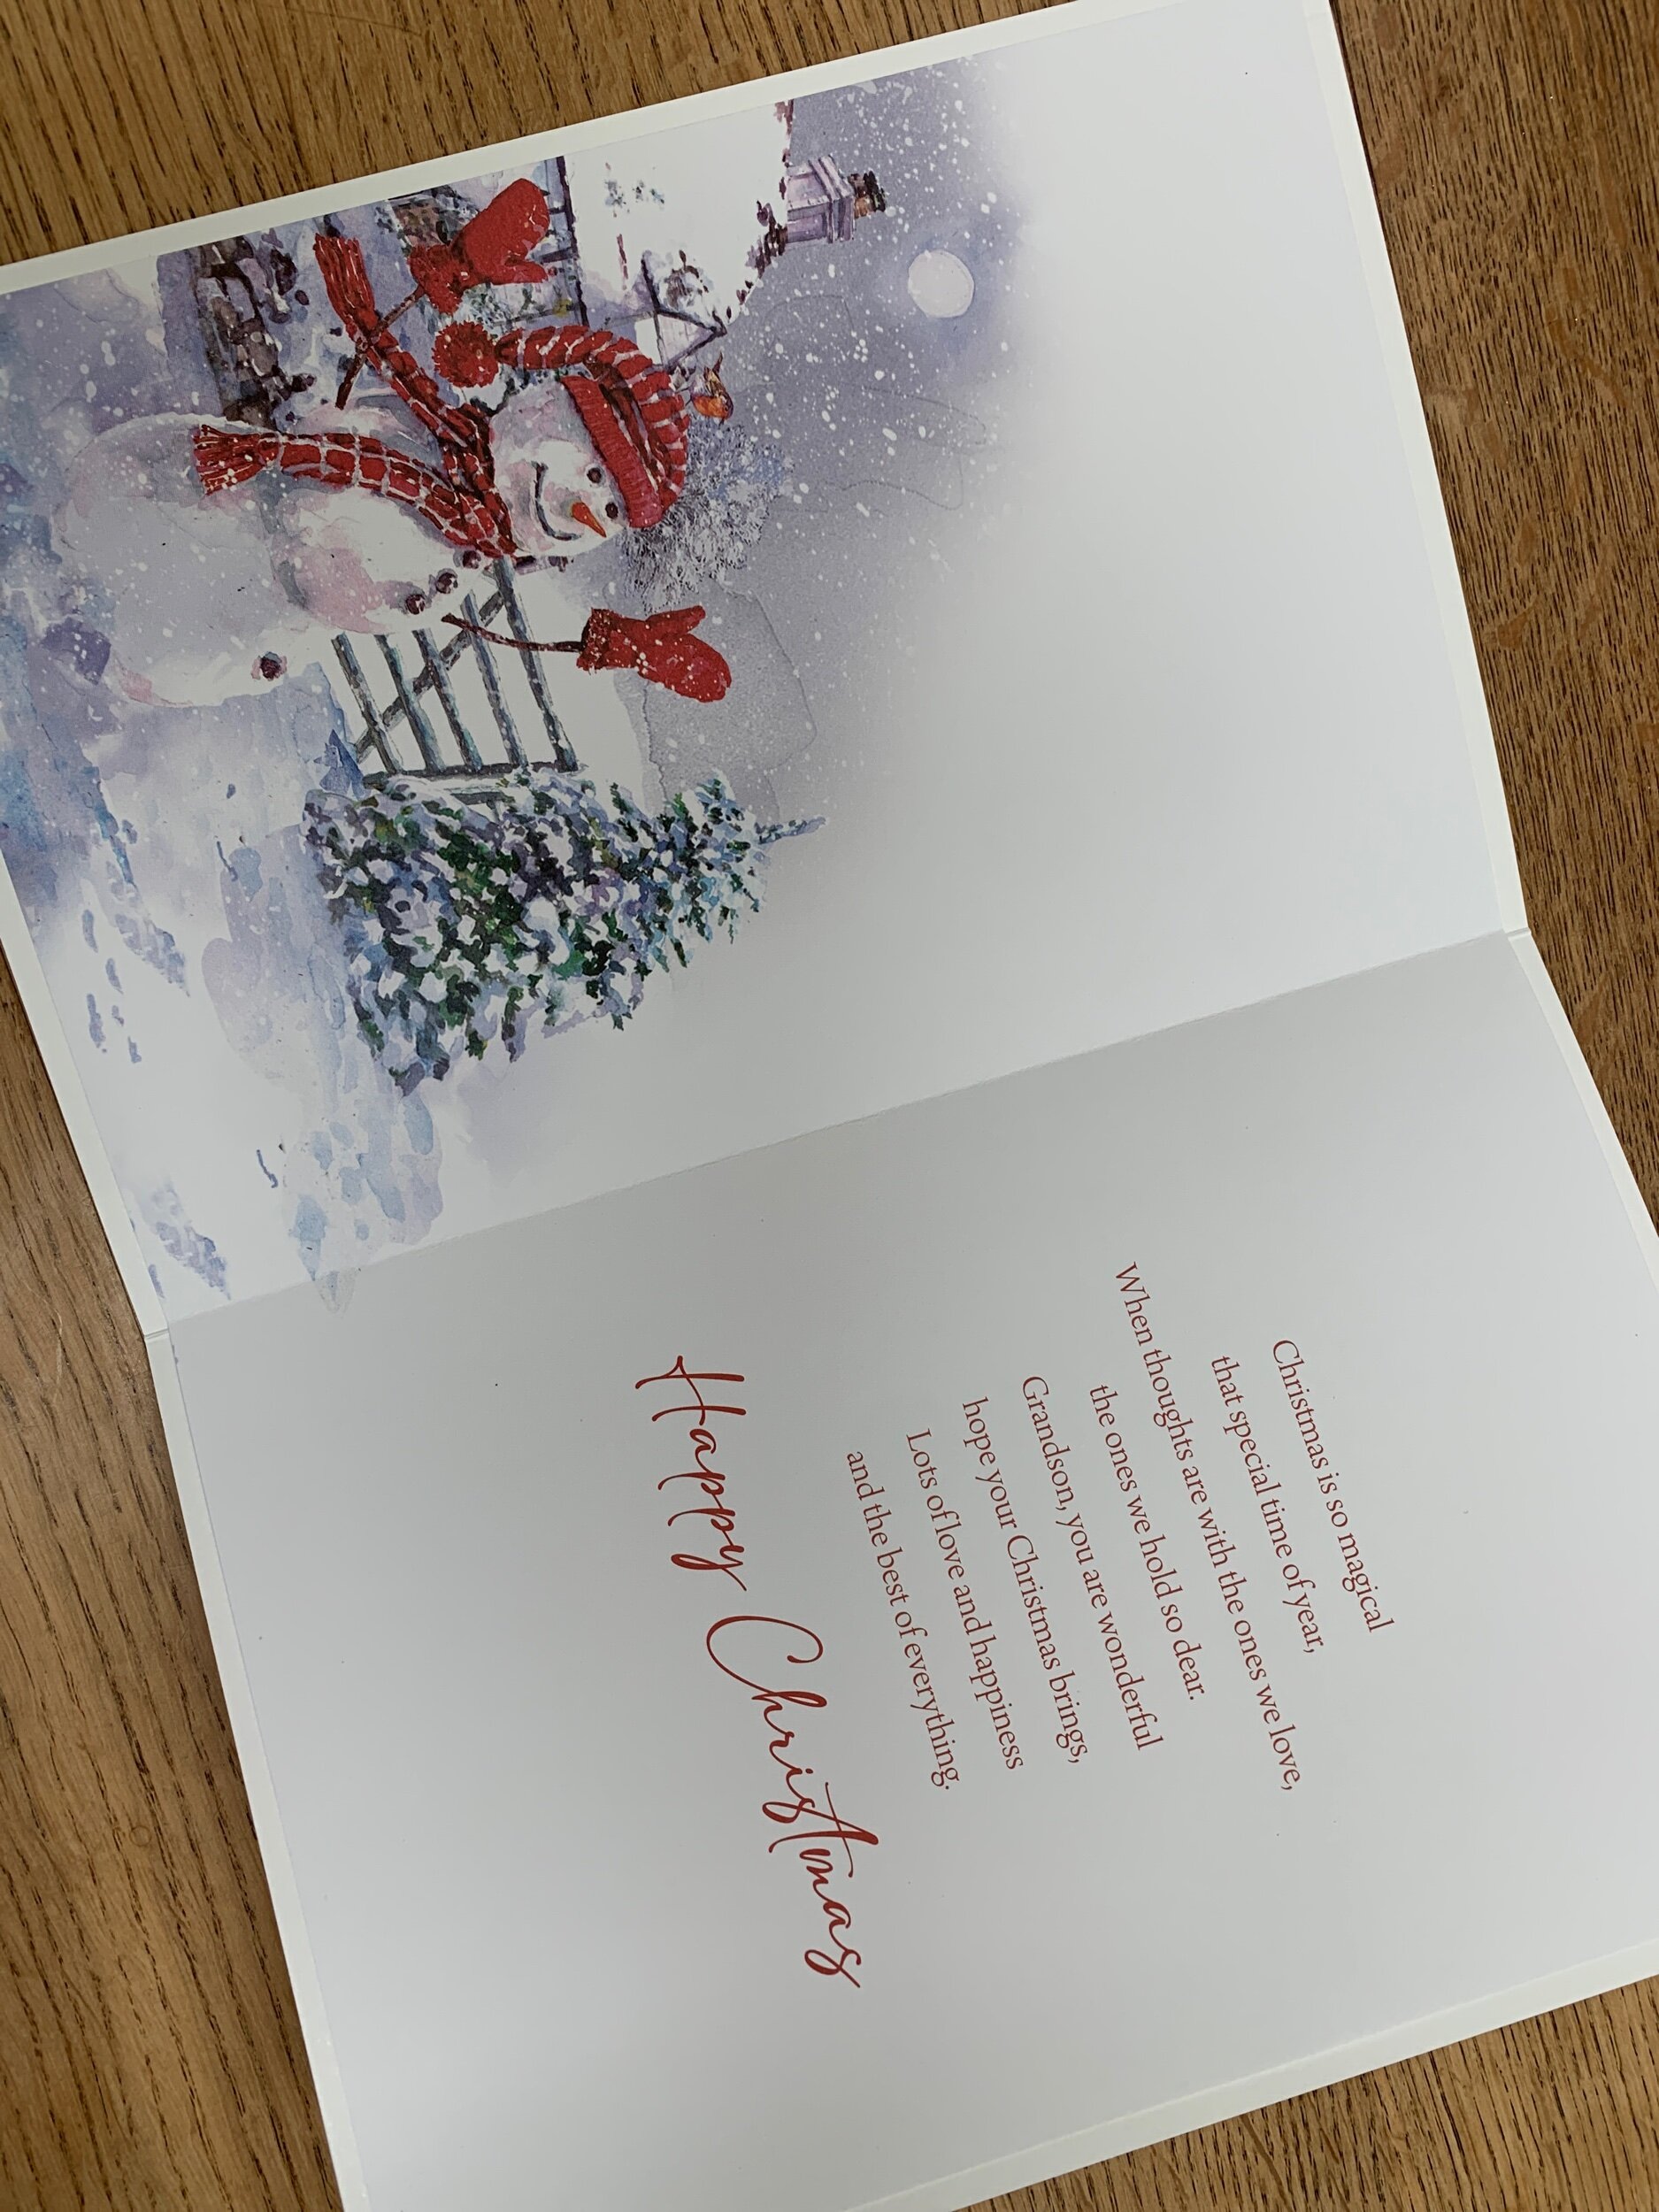 Christmas is so magical
that special time of year,
When thoughts are with the ones we love,
the ones we hold so dear.
Grandson, you are wonderful
hope your Christmas brings,
Lots of love and happiness
and the best of everything.
Happy Christmas